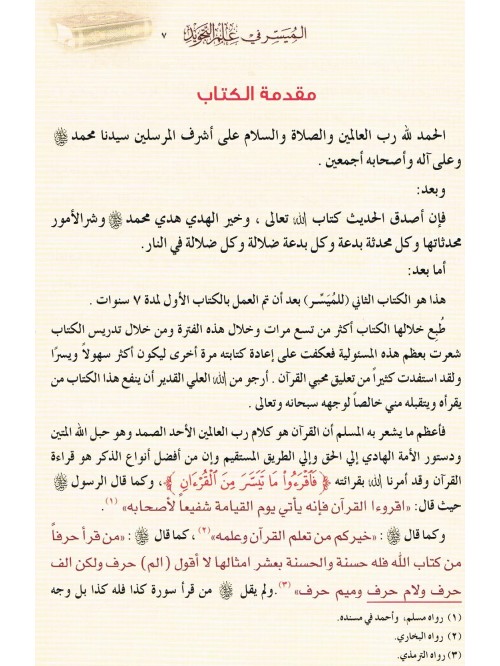 المُيَسَّر في عِلْمِ التَّجْوِيْدِ ٧
مقدمة الكتاب
الحمد لله رب العالمين والصلاة والسلام على أشرف المرسلين سيدنا محمد ﷺ
وعلى آله وأصحابه أجمعين .
وبعد:
فإن أصدق الحديث كتاب الله تعالى ، وخير الهدي هدي محمد ﷺ وشر الأمور
محدثاتها وكل محدثة بدعة وكل بدعة ضلالة وكل ضلالة في النار.
أما بعد:
هذا هو الكتاب الثاني (للمُيَسَّر) بعد أن تم العمل بالكتاب الأول لمدة ٧ سنوات .
طُبِع خلالها الكتاب أكثر من تسع مرات وخلال هذه الفترة ومن خلال تدريس الكتاب
شعرت بعظم هذه المسئولية فعكفت على إعادة كتابته مرة أخرى ليكون أكثر سهولاً ويسرًا
ولقد استفدت كثيراً من تعليق محبي القرآن . أرجو من الله العلي القدير أن ينفع هذا الكتاب من
يقرأه ويتقبله مني خالصاً لوجهه سبحانه وتعالى .
فأعظم ما يشعر به المسلم أن القرآن هو كلام رب العالمين الأحد الصمد وهو حبل الله المتين
ودستور الأمة الهادي إلي الحق وإلي الطريق المستقيم وإن من أفضل أنواع الذكر هو قراءة
القرآن وقد أمرنا الله بقرائته ﴿ فَٱقْرَءُوا۟ مَا تَيَسَّرَ مِنَ ٱلْقُرْءَانِ ﴾، وكما قال الرسول ﷺ
حيث قال: «اقروءا القرآن فإنه يأتي يوم القيامة شفيعاً لأصحابه» (١).
وكما قال ﷺ : «خيركم من تعلم القرآن وعلمه» (٢) ، كما قال ﷺ : «من قرأ حرفاً
من كتاب الله فله حسنة والحسنة بعشر امثالها لا أقول (الم) حرف ولكن الف
حرف ولام حرف وميم حرف» (٣) .ولم يقل ﷺ من قرأ سورة كذا فله كذا بل وجه
(١) رواه مسلم، وأحمد في مسنده.
(٢) رواه البخاري.
(٣) رواه الترمذي.